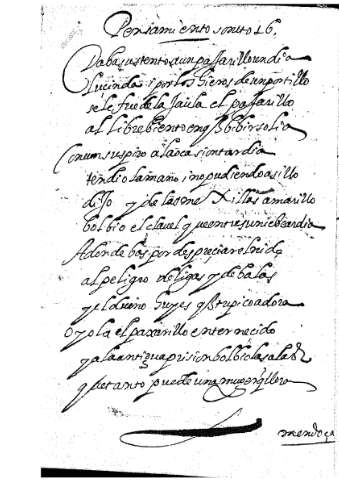 Pensamiento soneto 16.
Daba sustento a un passarillo un dia
Lucinda i por los yeros de un portillo
se le fue de la Jaula el passarillo
al libre biento en q bibir solia
Con un suspiro a la ocasion tardia
tendio la mano, i no pudiendo asillo
dijo y de las mexillas amarillo
bolbio el clavel que entre su niebe ardia
Adonde bas por despreciar el nido
al peligro de ligas y de balas
y el dueño huyes q tu pico adora
Oyola el paxarillo enternecido
y a la antigua prision bolbio las alas
q tanto puede una muger q llora
mendoça